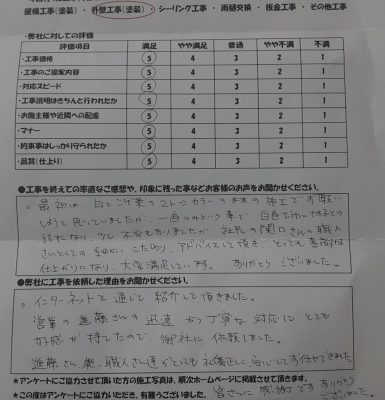 屋根工事(塗装) ・ 外壁工事(塗装) ・ シーリング工事 ・ 雨樋交換 ・ 板金工事 ・ その他工事
・弊社に対しての評価
評価項目 満足 やや満足 普通 やや不満 不満
・工事価格 5 4 3 2 1
・工事のご提案内容 5 4 3 2 1
・対応スピード 5 4 3 2 1
・工事説明はきちんと行われたか 5 4 3 2 1
・お施主様や近隣への配慮 5 4 3 2 1
・マナー 5 4 3 2 1
・約束事はしっかり守られたか 5 4 3 2 1
・品質(仕上り) 5 4 3 2 1
●工事を終えての率直なご感想や、印象に残った事などお客様のお声をお聞かせください。
。最初は、白とこげ茶の2トンカラーのままの施工でお願い
しようと思っていましたが、一色のみという事で
話になり、少し不安もありましたが、社長の関口さんの職人
さんとしての こだわり、アドバイスして頂き、とても素敵な
仕上がりになり、大変満足しています。 ありがとうございました。
●弊社に工事を依頼した理由をお聞かせください。
。インターネットを通じて 紹介して頂きました。
営業の進藤さんの 迅速 かつ丁寧な対応に とても
好感が持てたので、御社に依頼しました。
進藤さん、職人さん達がとても礼儀正しく、安心してお任せできました。
★アンケートにご協力させて頂いた方の施工写真は、順次ホームページに掲載させて頂きます。
★この度はアンケートにご協力いただき、有難うございました。 皆さんに感謝です ありがとう
ございました。